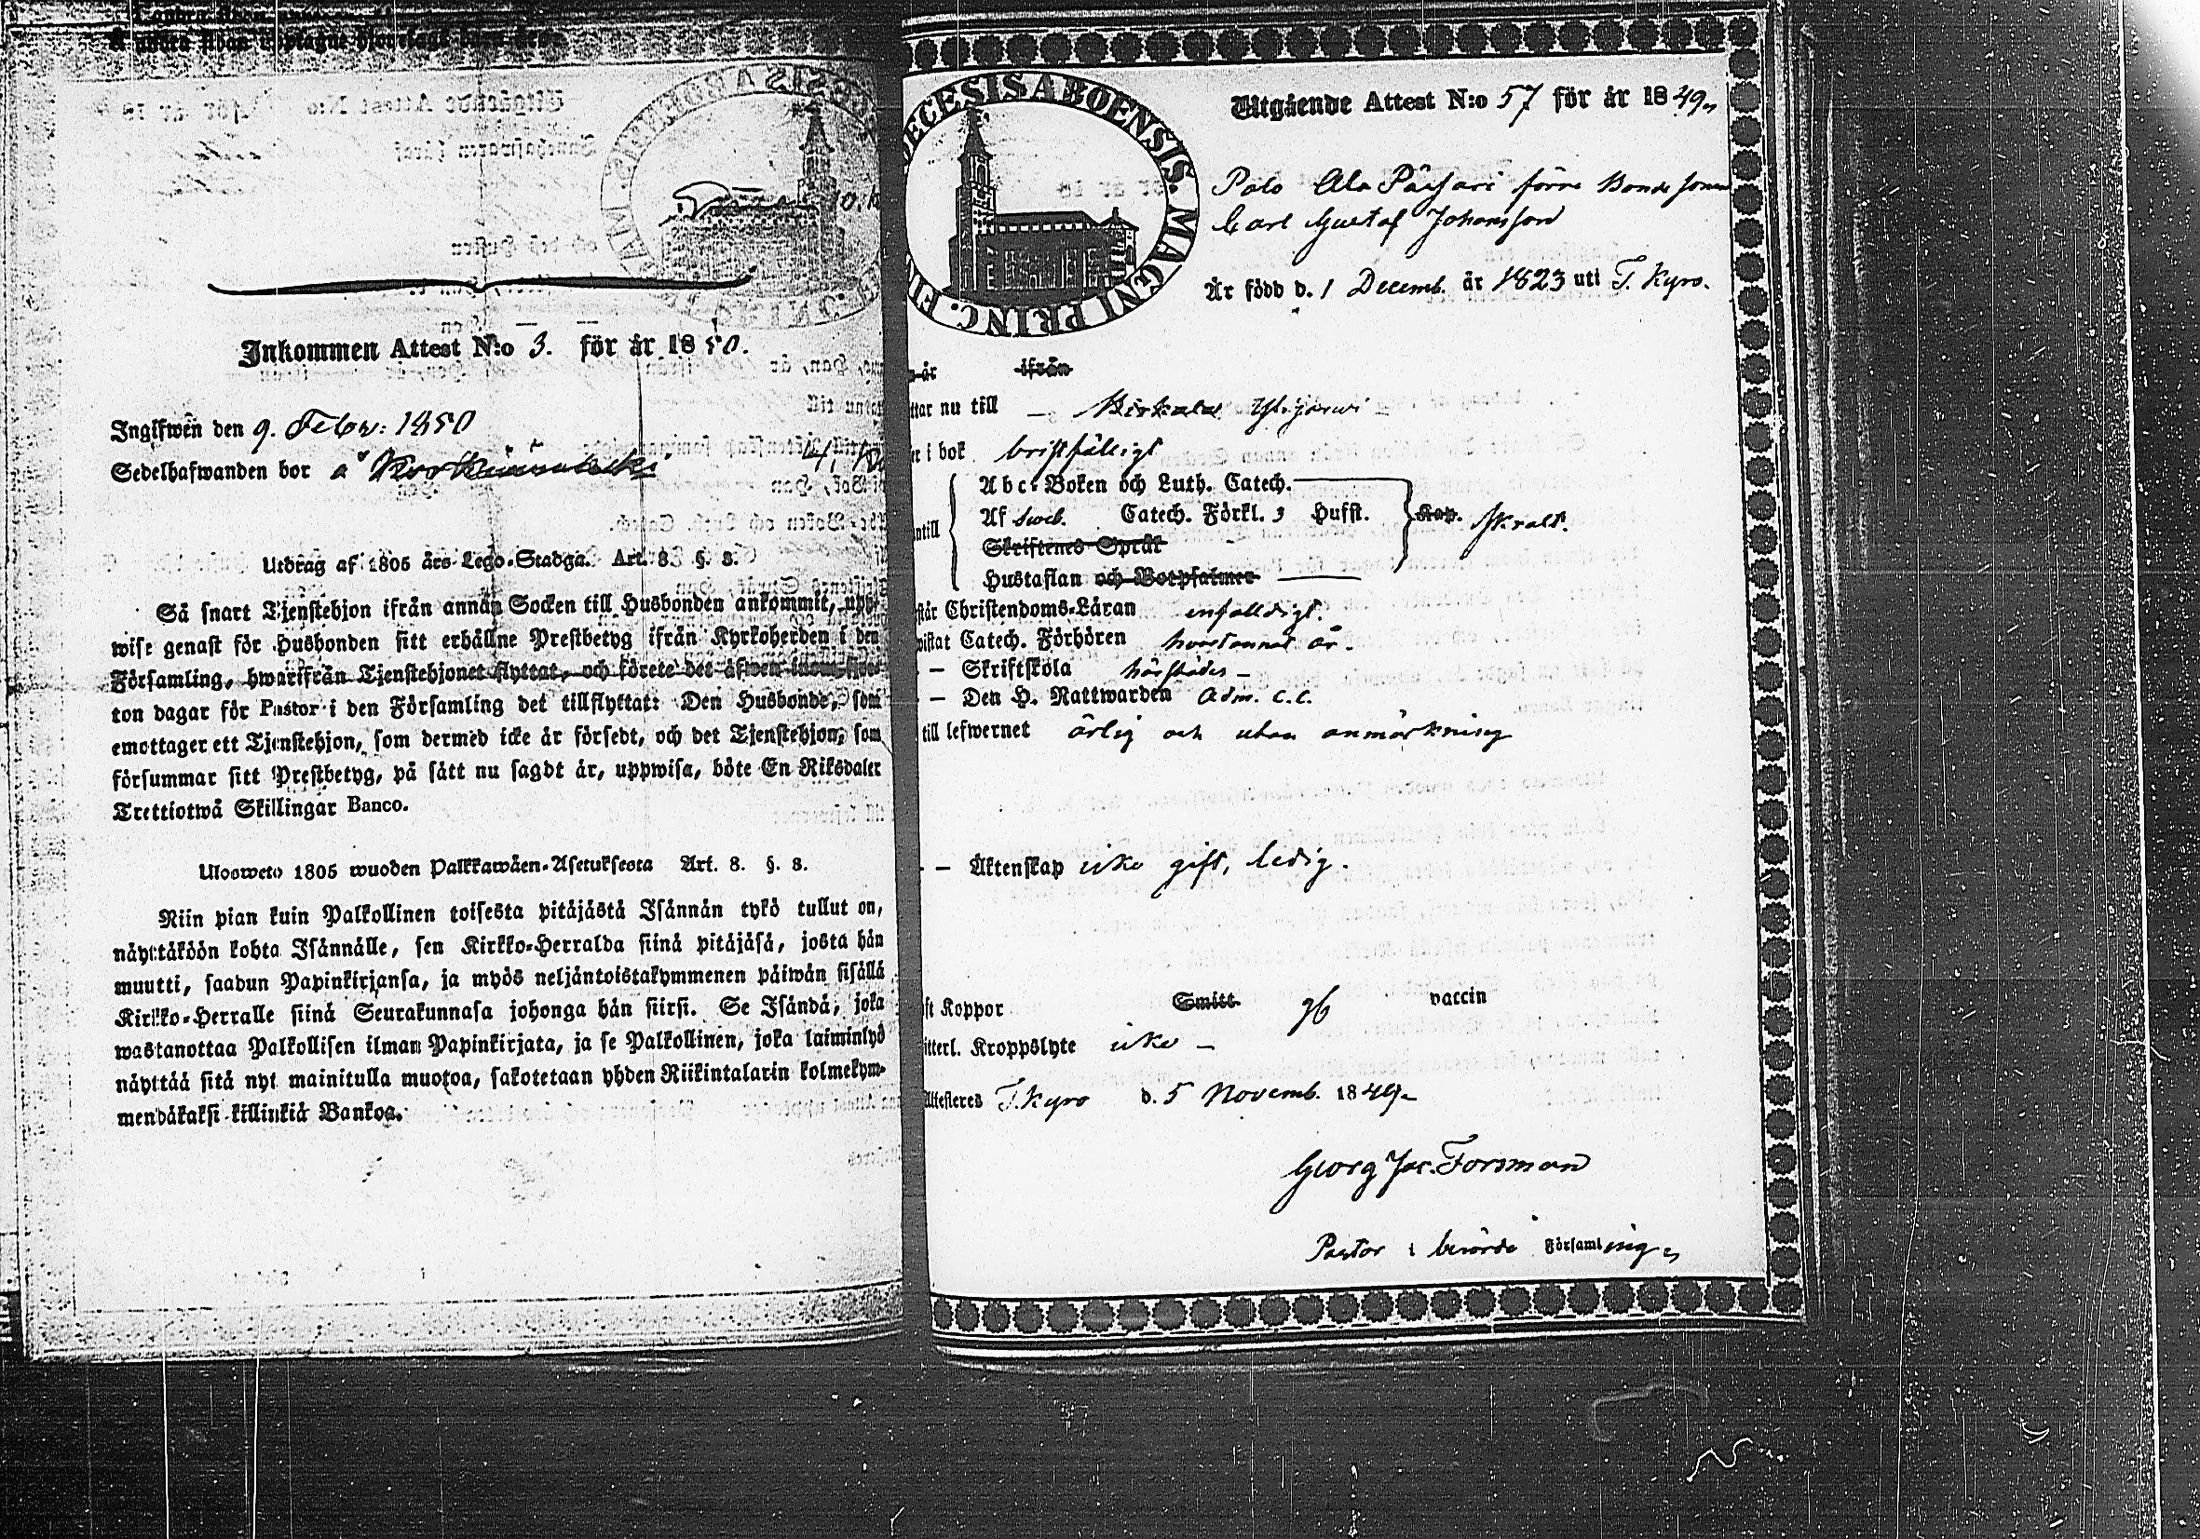 Inkommen Attest N:o 3. för år 1850.
Ingifwen den 9. Febr: 1850
Sedelhafwanden bor å
Utdrag af 1805 års Lego-Stadga. Art. 8. §. 8.
Så snart Tjenstehjon ifrån annan Socken till Husbonden ankommit, upp-
wise genast för Husbonden sitt erhållne Prestbetyg ifrån Kyrkoherden i den
Församling, hwarifrån Tjenstehjonet flyttat, och förete det äfwen inom fjor-
ton dagar för Pastor i den Församling det tillflyttat: Den Husbonde, som
emottager ett Tjenstehjon, som dermed icke är försedt, och det Tjenstehjon, som
försummar sitt Prestbetyg, på sätt nu sagdt är, uppwisa, böte En Riksdaler
Trettiotwå Skillingar Banco.
Uloosweto 1805 wuoden Palkkawäen-Asetuksesta Art. 8. §. 8.
Niin pian kuin Palkollinen toisesta pitäjästä Isännän tykö tullut on,
näyttäköön kohta Isännälle, sen Kirkko-Herralda siinä pitäjäsä, josta hän
muutti, saadun Papinkirjansa, ja myös neljäntoistakymmenen päiwän sisällä
Kirkko-Herralle siinä Seurakunnasa johonga hän siirsi. Se Isändä, joka
wastanottaa Palkollisen ilman Papinkirjata, ja se Palkollinen, joka laiminlyö
näyttää sitä nyt mainitulla muotoa, sakotetaan yhden Riikintalarin kolmekym-
mendäkaksi killinkiä Bankoa.
DIOECESIS ABOENSIS. MAGNI PRINC. FIN
Utgående Attest N:o 57 för år 1849,
Palo Ala Pärssari förre Bonde sonen
Carl Gustaf Johansson
Är född d. 1 Decemb. år 1823 uti T. Kyro.
år ifrån
ttar nu till – Birkala Ylijärwi –
r i bok bristfälligt
Abc-Boken och Luth. Catech.
ntill Af Sweb. Catech. Förkl. 3 Husst. Kap. skralt.
Skriftenes Språk
Hustaflan och Botpsalmer
står Christendoms-Läran enfaldigt.
wistat Catech. Förhören hvartannat år.
– Skriftskola härstädes –
– Den H. Nattwarden Adm. c.c.
till lefwernet ärlig och utan anmärkning
– Äktenskap icke gift, ledig.
ft Koppor Smitt gb vaccin
itterl. Kroppslyte icke –
Attesteres T. Kyro d. 5 Novemb. 1849 –
Georg Jac. Forsman
Pastor i berörde Församling